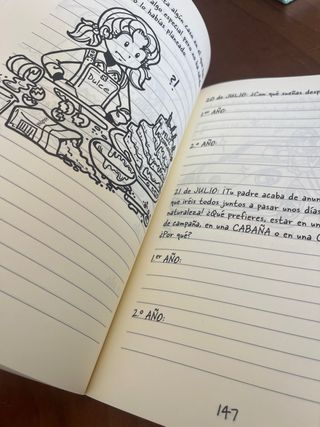 algún
algo especial pero
lo habías planeado.
?!
Duce
20 de JULIO: ¿Con qué sueñas
1er AÑO:
2.º AÑO:
21 de JULIO: ¡Tu padre acaba de
que iréis todos juntos a pasar unos días
naturaleza! ¿Qué prefieres, estar en
de campaña, en una CABAÑA o en una
¿Por qué?
1er AÑO:
2.º AÑO:
147